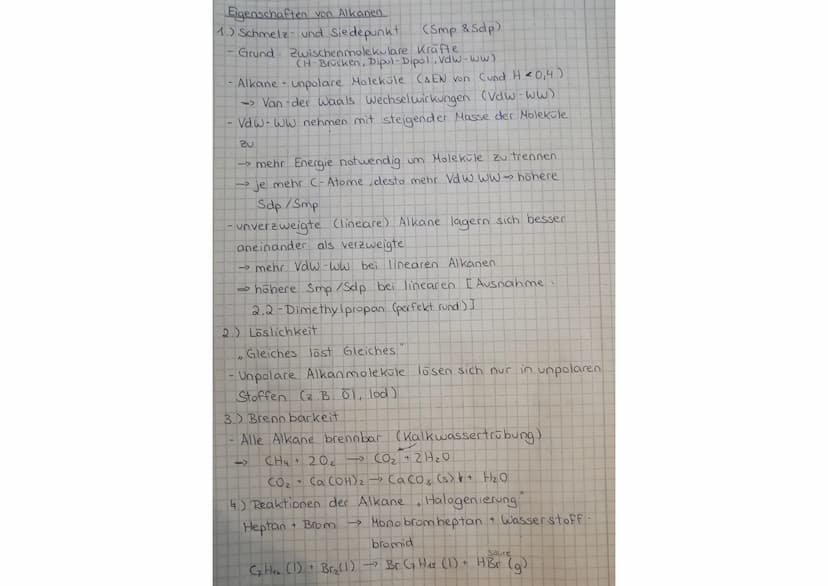 Eigenschaften von Alkanen
1.) Schmelz- und Siedepunkt (Smp & Sdp)
- Grund Zwischenmolekulare Kräfte
(H-Brücken, Dipol-Dipol, VdW-WW)
- Alkane - unpolare Moleküle (ΔEN von C und H < 0,4)
→ Van-der Waals Wechselwirkungen (VdW-WW)
- VdW-WW nehmen mit steigender Masse der Moleküle
zu
→ mehr Energie notwendig um Moleküle zu trennen
→ je mehr C-Atome, desto mehr VdW WW → höhere
Sdp/Smp
- unverzweigte (lineare) Alkane lagern sich besser
aneinander als verzweigte
→ mehr VdW-WW bei linearen Alkanen
⇒ höhere Smp/Sdp bei linearen [Ausnahme.
2.2-Dimethylpropan (perfekt rund)]
2.) Löslichkeit
„Gleiches löst Gleiches"
- Unpolare Alkanmoleküle lösen sich nur in unpolaren
Stoffen (z B. Öl, Iod)
3.) Brennbarkeit
- Alle Alkane brennbar (Kalkwassertrübung)
→ CH₄ + 2O₂ → CO₂ + 2H₂O
CO₂ + Ca(OH)₂ → CaCO₃(s)↓ + H₂O
4.) Reaktionen der Alkane „Halogenierung"
Heptan + Brom → Monobromheptan + Wasserstoff-
bromid
Säure
C₇H₁₆(l) + Br₂(l) → BrC₇H₁₅(l) + HBr(g)